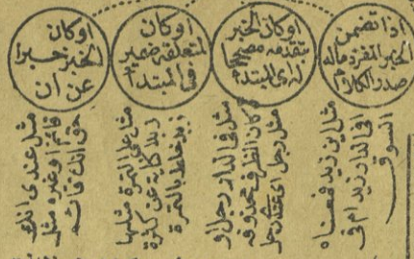 اذا تضمن
الخبر المفرد ماله
صدر الكلام
مثل اين زيد فمعناه
افى الدار زيد ام فى
السوق
او كان الخبر
بتقدمه مصححا
له اى المبتدأ
مثل فى الدار رجل او
كان الظرف محذوفه
مثل رجل اى عندى رجل
او كان
لمتعلقه ضمير
فى المبتدأ
مثل على التمرة مثلها
زبدا كاية عن كثرة
زبد خلط بالتمرة
او كان
الخبر خبرا
عن ان
مثل عندى انك
قائم او غيره مثل
حق انك قائم